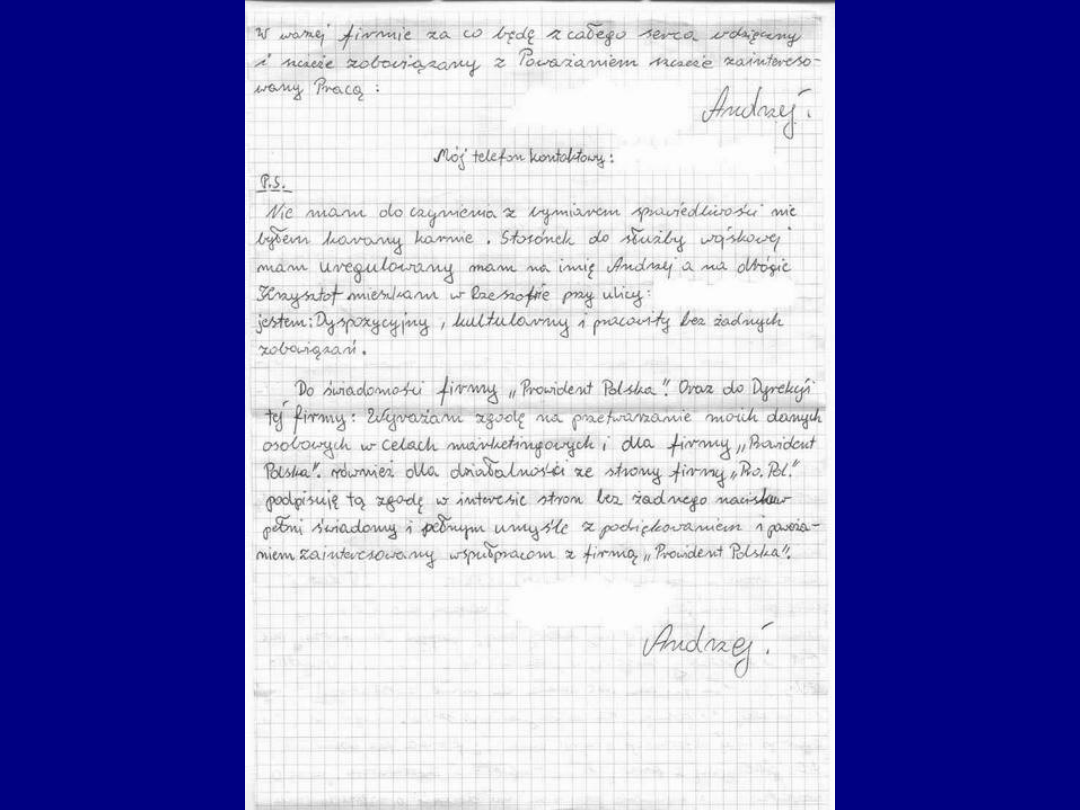 W waszej firmie za co będę z całego serca wdzięczny
i szczeże zobowiązany z Poważaniem szczeże zaintereso-
wany Pracą :
Andrzej.
Mój telefon kontaktowy:
P.S.
Nie mam do czynienia z wymiarem sprawiedliwości nie
byłem karany karnie . Stosónek do służby wojskowej
mam uregulowany mam na imię Andrzej a na drógie
Krzysztof mieszkam w Rzeszofie przy ulicy:
jestem: Dyspozycyjny , kulturarny i pracowity bez żadnych
zobowiązań.
Do świadomości firmy „Prowident Polska". Oraz do Dyrekcji
tej firmy: Wyrażam zgodę na przetwarzanie moich danych
osobowych w celach markietingowych i dla firmy „Prowident
Polska". również dla działalności ze strony firmy „Pro. Pol."
podpisuję tą zgodę w interesie stron bez żadnego nacisku w
pełni świadomy i pełnym umyśle z podziękowaniem i poważa-
niem zainteresowany współpracom z firmą „Prowident Polska".
Andrzej.